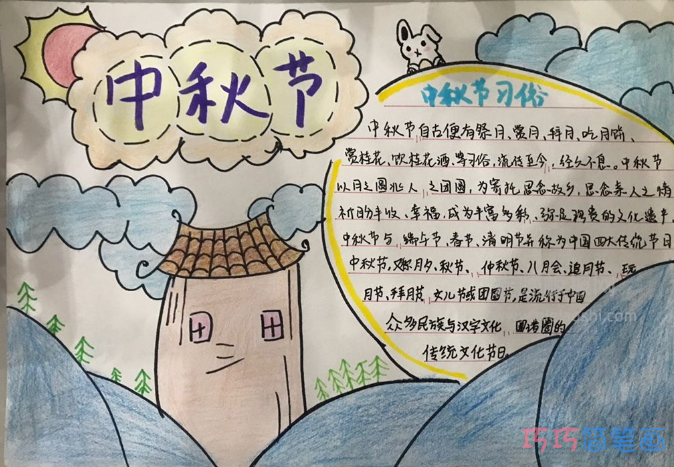 中秋节
中秋节习俗
中秋节自古便有祭月、赏月、拜月、吃月饼、
赏桂花、饮桂花酒等习俗，流传至今，经久不息。中秋节
以月之圆兆人之团圆，为寄托思念故乡，思念亲人之情
祈盼丰收、幸福，成为丰富多彩、弥足珍贵的文化遗产。
中秋节与端午节、春节、清明节并称为中国四大传统节日
中秋节，又称月夕、秋节、仲秋节、八月会、追月节、玩
月节、拜月节、女儿节或团圆节，是流行于中国
众多民族与汉字文化圈诸国的
传统文化节日
巧巧简笔画